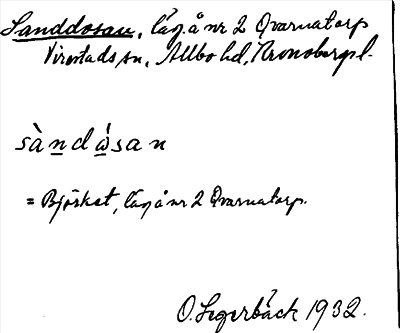 Sanddosan, läg. å nr 2 Qvarnatorp
Virestads sn, Allbo hd, Kronobergs l.
sàndósan
= Björket, läg å nr 2 Qvarnatorp.
O. Segerbäck 1932.